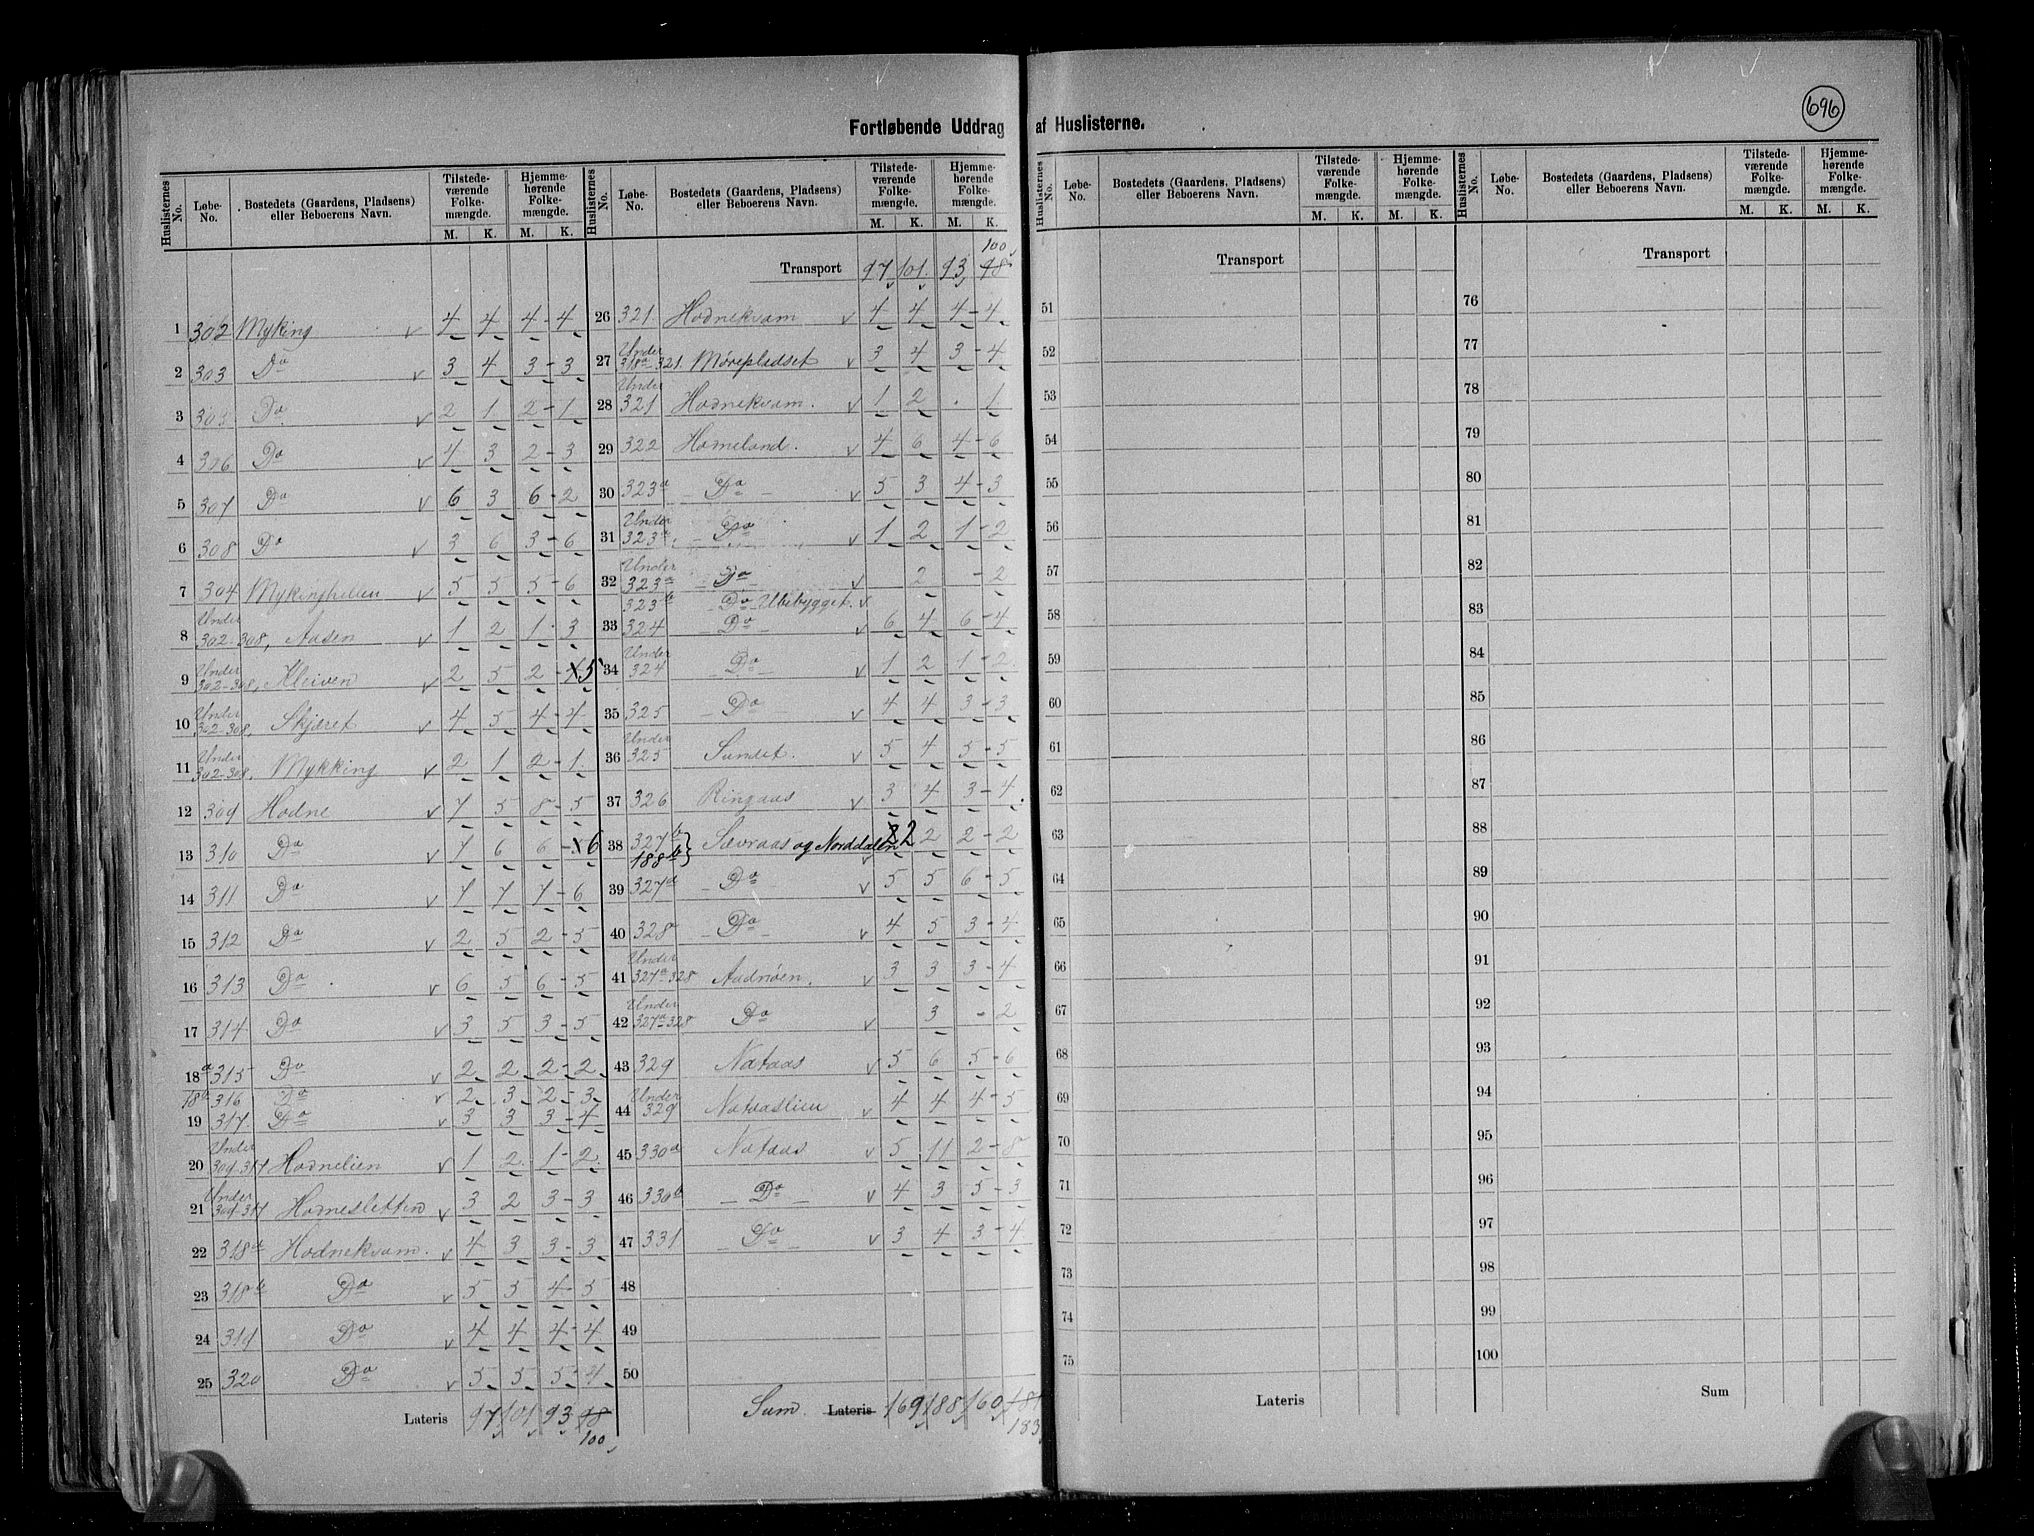 696
Fortløbende Uddrag af Huslisterne.
Huslisternes No. Løbe-No. Bostedets (Gaardens, Pladsens) eller Beboerens Navn. Tilstedeværende Folkemængde. M. K. Hjemmehørende Folkemængde. M. K.
1 302 Myking v 4 4 4 - 4
2 303 Do v 3 4 3 - 3
3 305 Do v 2 1 2 - 1
4 306 Do v 4 3 2 - 3
5 307 Do v 6 3 6 - 2
6 308 Do v 3 6 3 - 6
7 304 Mykinghelien v 5 5 5 - 6
8 Under 302-308, Aasen v 1 2 1 - 3
9 Under 302-308, Kleiven v 2 5 2 - 5
10 Under 302-308, Skjæret v 4 5 4 - 4
11 Under 302-308, Mykking v 2 1 2 - 1
12 309 Hodne v 7 5 8 - 5
13 310 Do v 7 6 6 - 6
14 311 Do v 7 7 7 - 6
15 312 Do v 2 5 2 - 5
16 313 Do v 6 5 6 - 5
17 314 Do v 3 5 3 - 5
18a 315 Do v 2 2 2 - 2
18b 316 Do v 2 3 2 - 3
19 317 Do v 3 3 3 - 4
20 Under 309-317 Hodnelien v 1 2 1 - 2
21 Under 309-317 Hodnesletten v 3 2 3 - 3
22 318a Hodnekvam. v 4 3 3 - 3
23 318b Do v 5 5 4 - 5
24 319 Do v 4 4 4 - 4
25 320 Do v 5 5 5 - 4
Lateris 97 101 93 98
100
Huslisternes No. Løbe-No. Bostedets (Gaardens, Pladsens) eller Beboerens Navn. Tilstedeværende Folkemængde. M. K. Hjemmehørende Folkemængde. M. K.
100
Transport 97 101 93 98
26 321 Hodnekvam v 4 4 4 - 4
27 Under 318a-321. Mørepladset v 3 4 3 - 4
28 Under 321 Hodnekvam. v 1 2 . 1
29 322 Homeland. v 4 6 4 - 6
30 323a Do v 5 3 4 - 3
31 Under 323a Do v 1 2 1 - 2
32 Under 323a Do v 2 - 2
323b Do Ubebygget. v
33 324 Do v 6 4 6 - 4
34 Under 324 Do v 1 2 1 - 2
35 325 Do v 4 4 3 - 3
36 Under 325 Sundet. v 5 4 5 - 5
37 326 Ringaas v 3 4 3 - 4
38 327b 188b} Sævraas og Norddalen v 2 2 2 - 2
39 327a Do v 5 5 6 - 5
40 328 Do v 4 5 3 - 4
41 Under 327a-328 Audnöen. v 3 3 3 - 4
42 Under 327a-328 Do v 3 - 2
43 329 Nataas v 5 6 5 - 6
44 Under 329 Nataaslien v 4 4 4 - 5
45 330a Nataas v 5 11 2 - 8
46 330b Do v 4 3 5 - 3
47 331 Do v 3 4 3 - 4
48
49
50
Sum. Lateris 169 188 160 181
183
Huslisternes No. Løbe-No. Bostedets (Gaardens, Pladsens) eller Beboerens Navn. Tilstedeværende Folkemængde. M. K. Hjemmehørende Folkemængde. M. K.
Transport
51
52
53
54
55
56
57
58
59
60
61
62
63
64
65
66
67
68
69
70
71
72
73
74
75
Lateris
Huslisternes No. Løbe-No. Bostedets (Gaardens, Pladsens) eller Beboerens Navn. Tilstedeværende Folkemængde. M. K. Hjemmehørende Folkemængde. M. K.
Transport
76
77
78
79
80
81
82
83
84
85
86
87
88
89
90
91
92
93
94
95
96
97
98
99
100
Sum